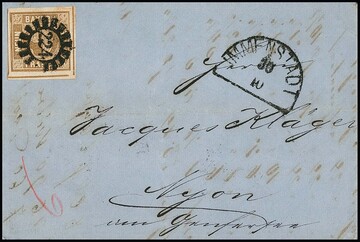 BAYERN
224
IMMENSTADT
30
10
Jacques Kläger
Nyon
am Genfersee